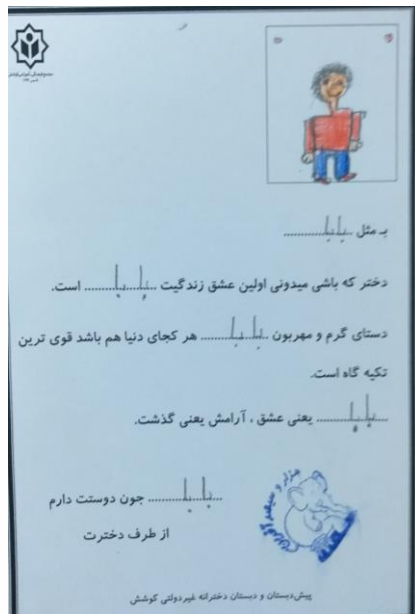 بـ مثل ..بابا............
دختر که باشی میدونی اولین عشق زندگیت ..بابا........ است.
دستای گرم و مهربون ..بابا........ هر کجای دنیا هم باشد قوی ترین
تکیه گاه است.
..بابا........ یعنی عشق ، آرامش یعنی گذشت.
..بابا........ جون دوستت دارم
از طرف دخترت
هزار و سیصد آفرین
پیش‌دبستان و دبستان دخترانه غیردولتی کوشش